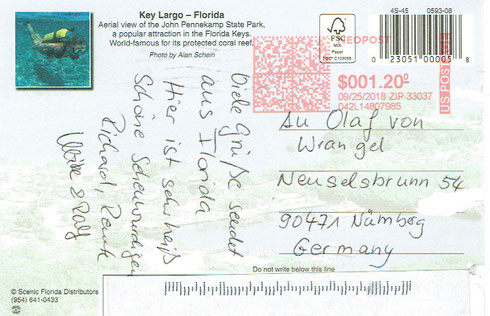 Key Largo – Florida
Aerial view of the John Pennekamp State Park,
a popular attraction in the Florida Keys.
World-famous for its protected coral reef.
Photo by Alan Schein
FSC
MIX
Paper
4S-45 0593-08
0 23051 00005 8
$001.20⁰
09/25/2018 ZIP 33037
042L14807985
US POSTAGE
Viele Grüße sendet
aus Florida
Hier ist sehr heiß
Schöne
Richard, Renate
Ulrike & Ralf
An Olaf von
Wrangel
Neuselsbrunn 54
90471 Nürnberg
Germany
Do not write below this line
© Scenic Florida Distributors
(954) 641-0433